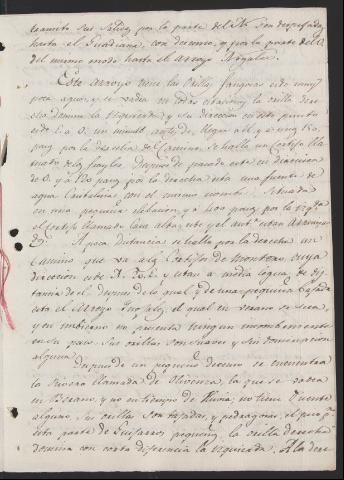 transito sus salidas por la parte del N. son despejadas
hasta el Guadiana, con descenso, y por la parte del S.
del mismo modo hasta el arroyo
Este Arroyo tiene las Orillas
poca agua, y se vadea en todas estaciones, la orilla dere-
cha domina la Izquierda, y su direccion en este punto
es de E. a O. un minuto antes de llegar a él, y a
pasos por la derecha del Camino, se halla un Cortijo lla-
mado de despues de pasado este en direccion
de S. y a 130 pasos por la derecha esta una fuente de
agua con el mismo nombre, Situada
en una pequeña elevacion, y a 600 pasos por la izqda
el Cortijo llamado Casa alta, este y el antr. estan
dos.
A poca distancia se halla por la derecha un
Camino que va al Cortijo de Montero cuya
direccion es de y esta a media legua de dis-
tancia de el, despues de lo qual y de una pequeña bajada
esta el Arroyo el qual en verano se seca,
y en imbierno no presenta ningun incombeniente
en su paso. Sus orillas son suaves y sin dominacion
alguna.
Despues de un pequeño descenso se encuentra
la Rivera llamada de Olivenza, la que se vadea
en Verano, y no en tiempo de lluvia; no tiene Puente
alguno. Sus orillas son tajadas, y pedragosas, el piso
esta parte de Guijarros pequeños, la orilla derecha
domina con corta diferencia la izquierda. A la dere-